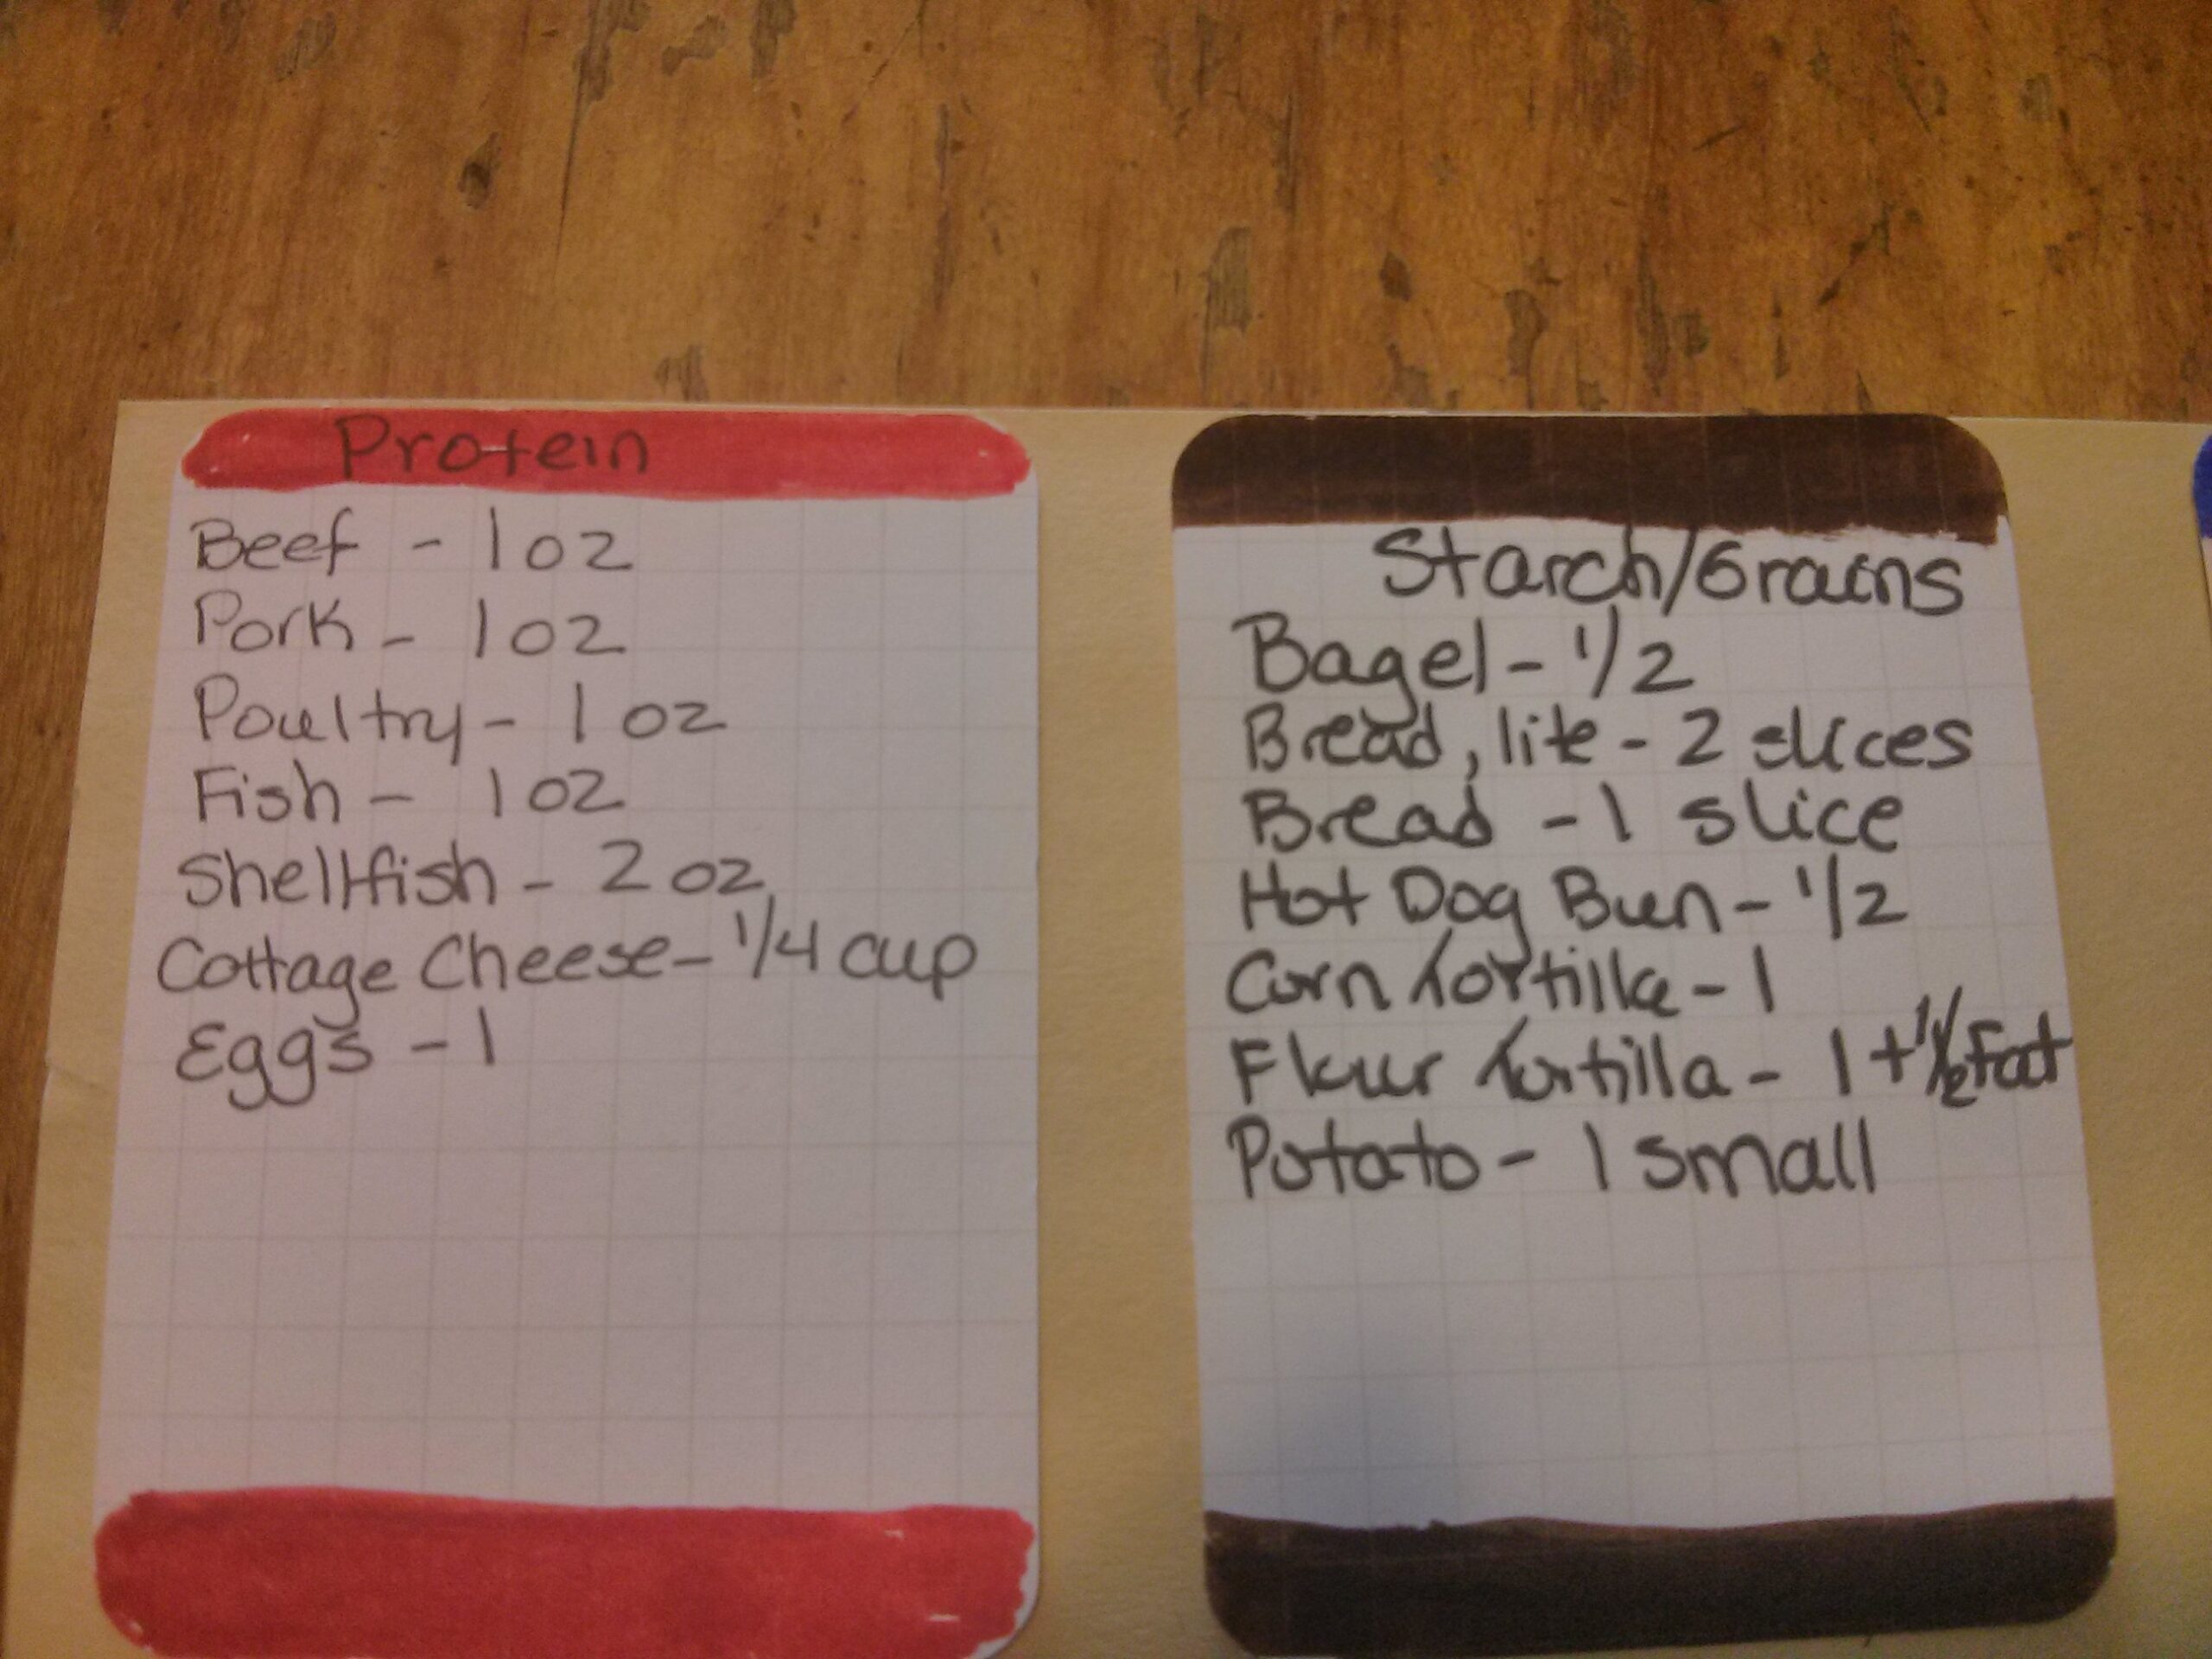 Protein
Beef - 1 oz
Pork - 1 oz
Poultry - 1 oz
Fish - 1 oz
Shellfish - 2 oz
Cottage Cheese - 1/4 cup
Eggs - 1
Starch/Grains
Bagel - 1/2
Bread, lite - 2 slices
Bread - 1 slice
Hot Dog Bun - 1/2
Corn tortilla - 1
Flour tortilla - 1 + 1/2 Fat
Potato - 1 small